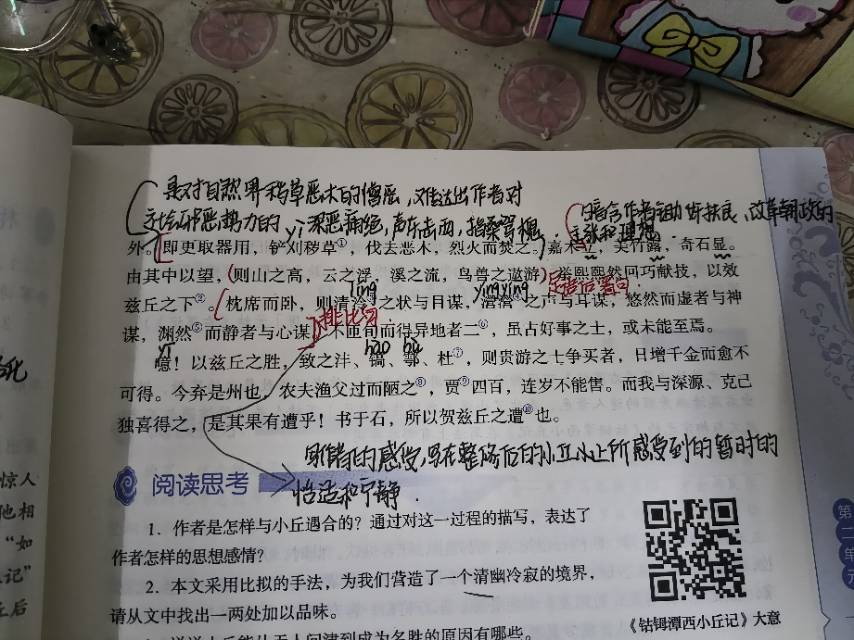 是对自然界秽草恶木的憎恶，难达出作者对
社会邪恶势力的 yì 深恶痛绝，声东击西，指桑骂槐
暗合作者铲助 扶良，改革朝政的
主张和理想
外。即更取器用，铲刈秽草①，伐去恶木，烈火而焚之。嘉木立，美竹露，奇石显。
由其中以望，则山之高，云之浮，溪之流，鸟兽之遨游，举熙熙然回巧献技，以效
líng
yíng yíng
兹丘之下④。枕席而卧，则清泠之状与目谋，瀯瀯之声与耳谋，悠然而虚者与神
排比句
谋，渊然⑤而静者与心谋。不匝旬而得异地者二⑥，虽古好事之士，或未能至焉。
yī
hào hù
噫！以兹丘之胜，致之沣、镐、鄠、杜⑦，则贵游之士争买者，日增千金而愈不
可得。今弃是州也，农夫渔父过而陋之⑧，贾⑨四百，连岁不能售。而我与深源、克己
独喜得之，是其果有遭乎！书于石，所以贺兹丘之遭⑩也。
的感受，写在整修后的小丘上所感受到的暂时的
怡适和宁静．
阅读思考
1. 作者是怎样与小丘遇合的？通过对这一过程的描写，表达了
作者怎样的思想感情？
2. 本文采用比拟的手法，为我们营造了一个清幽冷寂的境界，
请从文中找出一两处加以品味。
《钴鉧潭西小丘记》大意
第二单元
惊人
他相
“如
记”
丘后